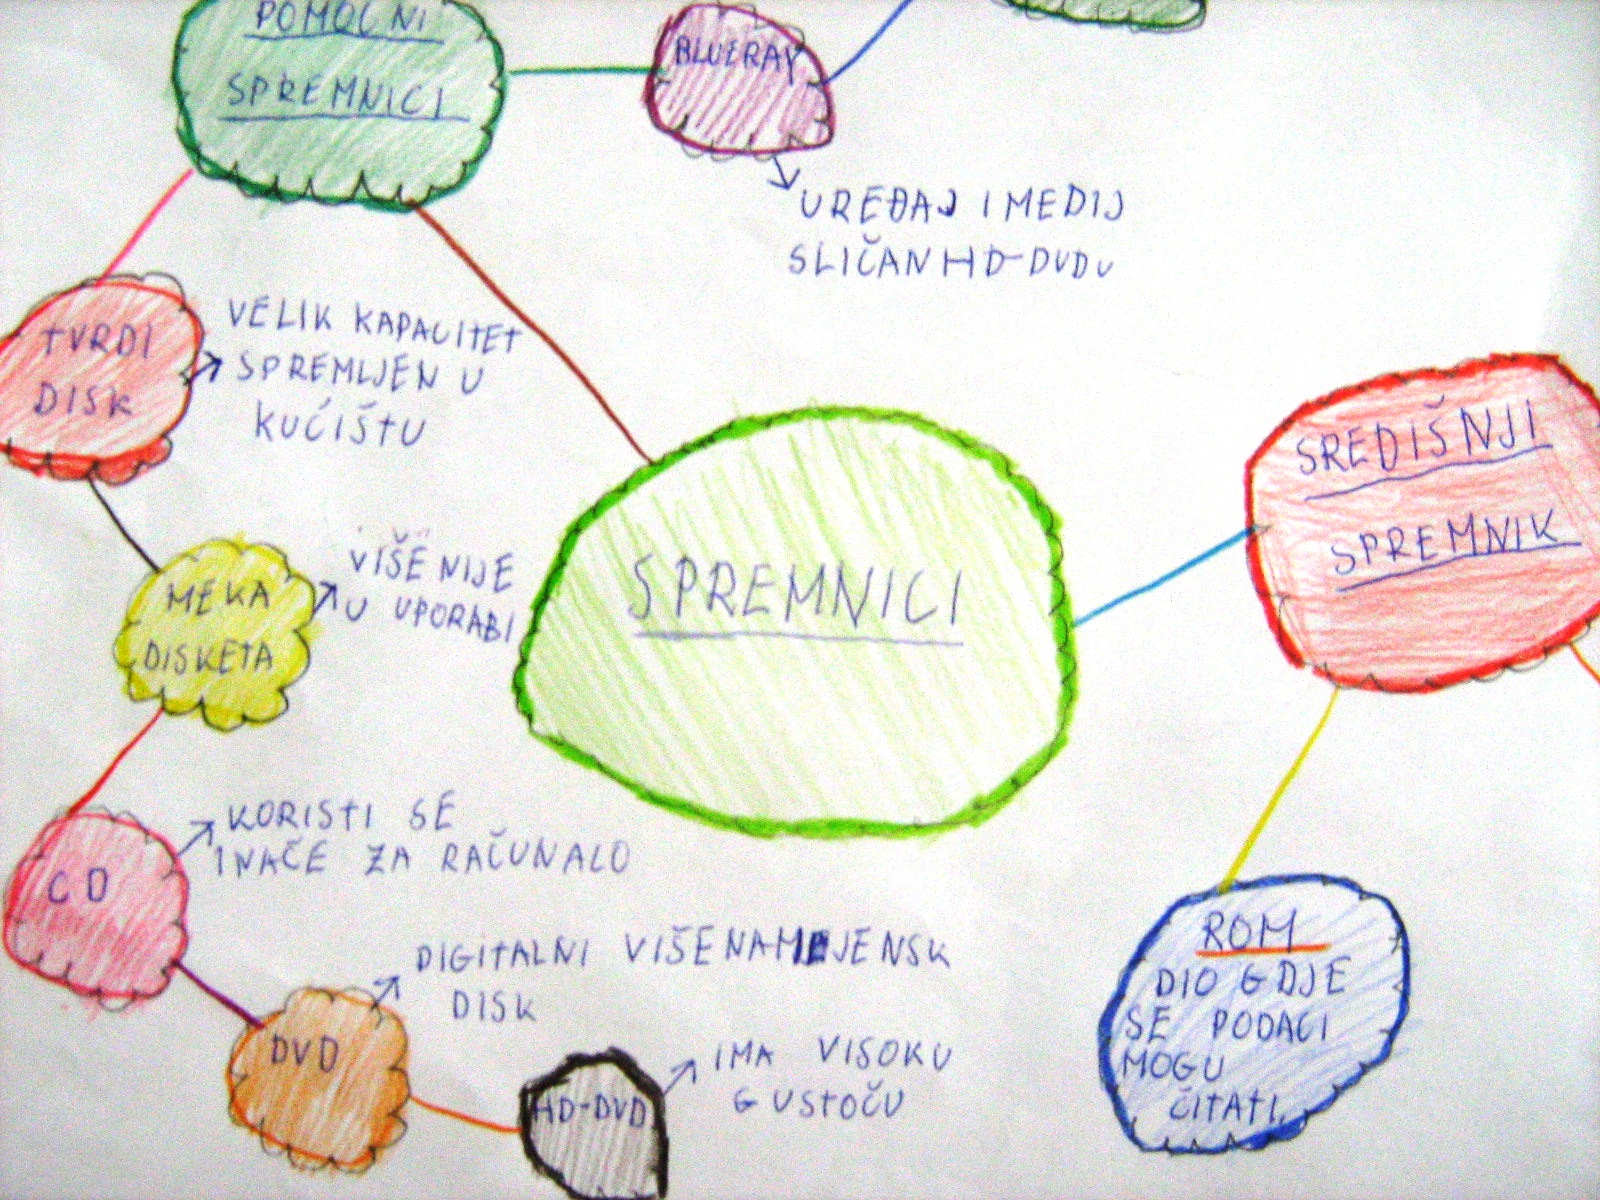 POMOĆNI
SPREMNICI
BLUERAY
UREĐAJ I MEDIJ
SLIČAN HD-DVDU
TVRDI
DISK
VELIK KAPACITET
SPREMLJEN U
KUĆIŠTU
SREDIŠNJI
SPREMNIK
SPREMNICI
MEKA
DISKETA
VIŠE NIJE
U UPORABI
CD
KORISTI SE
INAČE ZA RAČUNALO
DVD
DIGITALNI VIŠENAMJENSK
DISK
HD-DVD
IMA VISOKU
GUSTOČU
ROM
DIO GDJE
SE PODACI
MOGU
ČITATI.